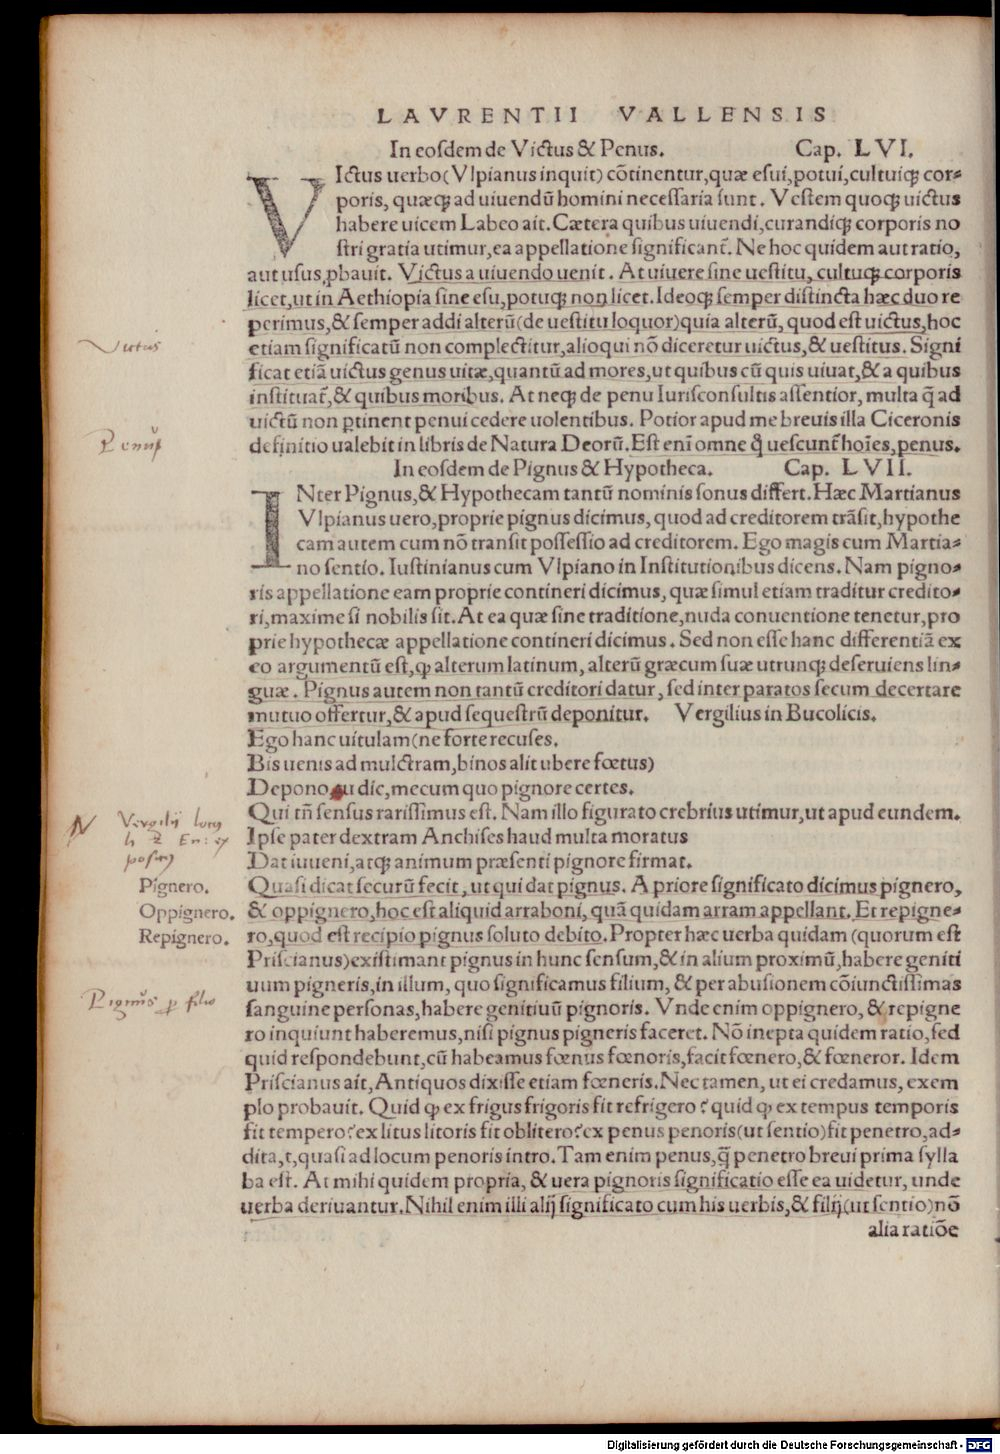 LAVRENTII VALLENSIS
In eosdem de Victus & Penus. Cap. LVI.
VIctus uerbo(Vlpianus inquit) cõtinentur, quæ esui, potui, cultuiq; cor⸗
poris, quæq; ad uiuendũ homini necessaria sunt. Vestem quoq; uictus
habere uicem Labeo ait. Cætera quibus uiuendi, curandiq; corporis no
stri gratia utimur, ea appellatione significant̃. Ne hoc quidem aut ratio,
aut usus ꝓbauit. Victus a uiuendo uenit. At uiuere sine uestitu, cultuq; corporis
licet, ut in Aethiopia sine esu, potuq; non licet. Ideoq; semper distincta hæc duo re
perimus, & semper addi alterũ(de uestitu loquor)quia alterũ, quod est uictus, hoc
etiam significatũ non complectitur, alioqui nõ diceretur uictus, & uestitus. Signi
ficat etiã uictus genus uitæ, quantũ ad mores, ut quibus cũ quis uiuat, & a quibus
instituat̃, & quibus moribus. At neq; de penu Iurisconsultis assentior, multa q̃ ad
uictũ non ꝑtinent penui cedere uolentibus. Potior apud me breuis illa Ciceronis
definitio ualebit in libris de Natura Deorũ. Est eni omne ꝙ uescunt̃ hoies, penus.
In eosdem de Pignus & Hypotheca. Cap. LVII.
INter Pignus, & Hypothecam tantũ nominis sonus differt. Hæc Martianus
Vlpianus uero, proprie pignus dicimus, quod ad creditorem trãsit, hypothe
cam autem cum nõ transit possessio ad creditorem. Ego magis cum Martia⸗
no sentio. Iustinianus cum Vlpiano in Institutionibus dicens. Nam pigno⸗
ris appellatione eam proprie contineri dicimus, quæ simul etiam traditur credito⸗
ri, maxime si nobilis sit. At ea quæ sine traditione, nuda conuentione tenetur, pro
prie hypothecæ appellatione contineri dicimus. Sed non esse hanc differentiã ex
eo argumentũ est, ꝙ alterum latinum, alterũ græcum suæ utrunq; deseruiens lin⸗
guæ. Pignus autem non tantũ creditori datur, sed inter paratos secum decertare
mutuo offertur, & apud sequestrũ deponitur. Vergilius in Bucolicis.
Ego hanc uitulam(ne forte recuses.
Bis uenis ad mulctram, binos alit ubere fœtus)
Depono, tu dic, mecum quo pignore certes.
Qui tñ sensus rarissimus est. Nam illo figurato crebrius utimur, ut apud eundem.
Vergilij locus
Ipse pater dextram Anchises haud multa moratus
Dat iuueni, atq; animum præsenti pignore firmat.
Pignero.
Quasi dicat securũ fecit, ut qui dat pignus. A priore significato dicimus pignero,
Oppignero.
& oppignero, hoc est aliquid arraboni, quã quidam arram appellant. Et repigne⸗
Repignero.
ro, quod est recipio pignus soluto debito. Propter hæc uerba quidam (quorum est
Priscianus)existimant pignus in hunc sensum, & in alium proximũ, habere geniti
uum pigneris, in illum, quo significamus filium, & per abusionem cõiunctissimas
sanguine personas, habere genitiuũ pignoris. Vnde enim oppignero, & repigne
ro inquiunt haberemus, nisi pignus pigneris faceret. Nõ inepta quidem ratio, sed
quid respondebunt, cũ habeamus fœnus fœnoris, facit fœnero, & fœneror. Idem
Priscianus ait, Antiquos dixisse etiam fœneris. Nec tamen, ut ei credamus, exem
plo probauit. Quid ꝙ ex frigus frigoris fit refrigero? quid ꝙ ex tempus temporis
fit tempero? ex litus litoris fit oblitero? ex penus penoris(ut sentio)fit penetro, ad⸗
dita, t, quasi ad locum penoris intro. Tam enim penus, q̃ penetro breui prima sylla
ba est. At mihi quidem propria, & uera pignoris significatio esse ea uidetur, unde
uerba deriuantur. Nihil enim illi alij significato cum his uerbis, & filij(ut sentio)nõ
alia ratiõe
Victus
Penus
Pignus p filio
Digitalisierung gefördert durch die Deutsche Forschungsgemeinschaft - DFG